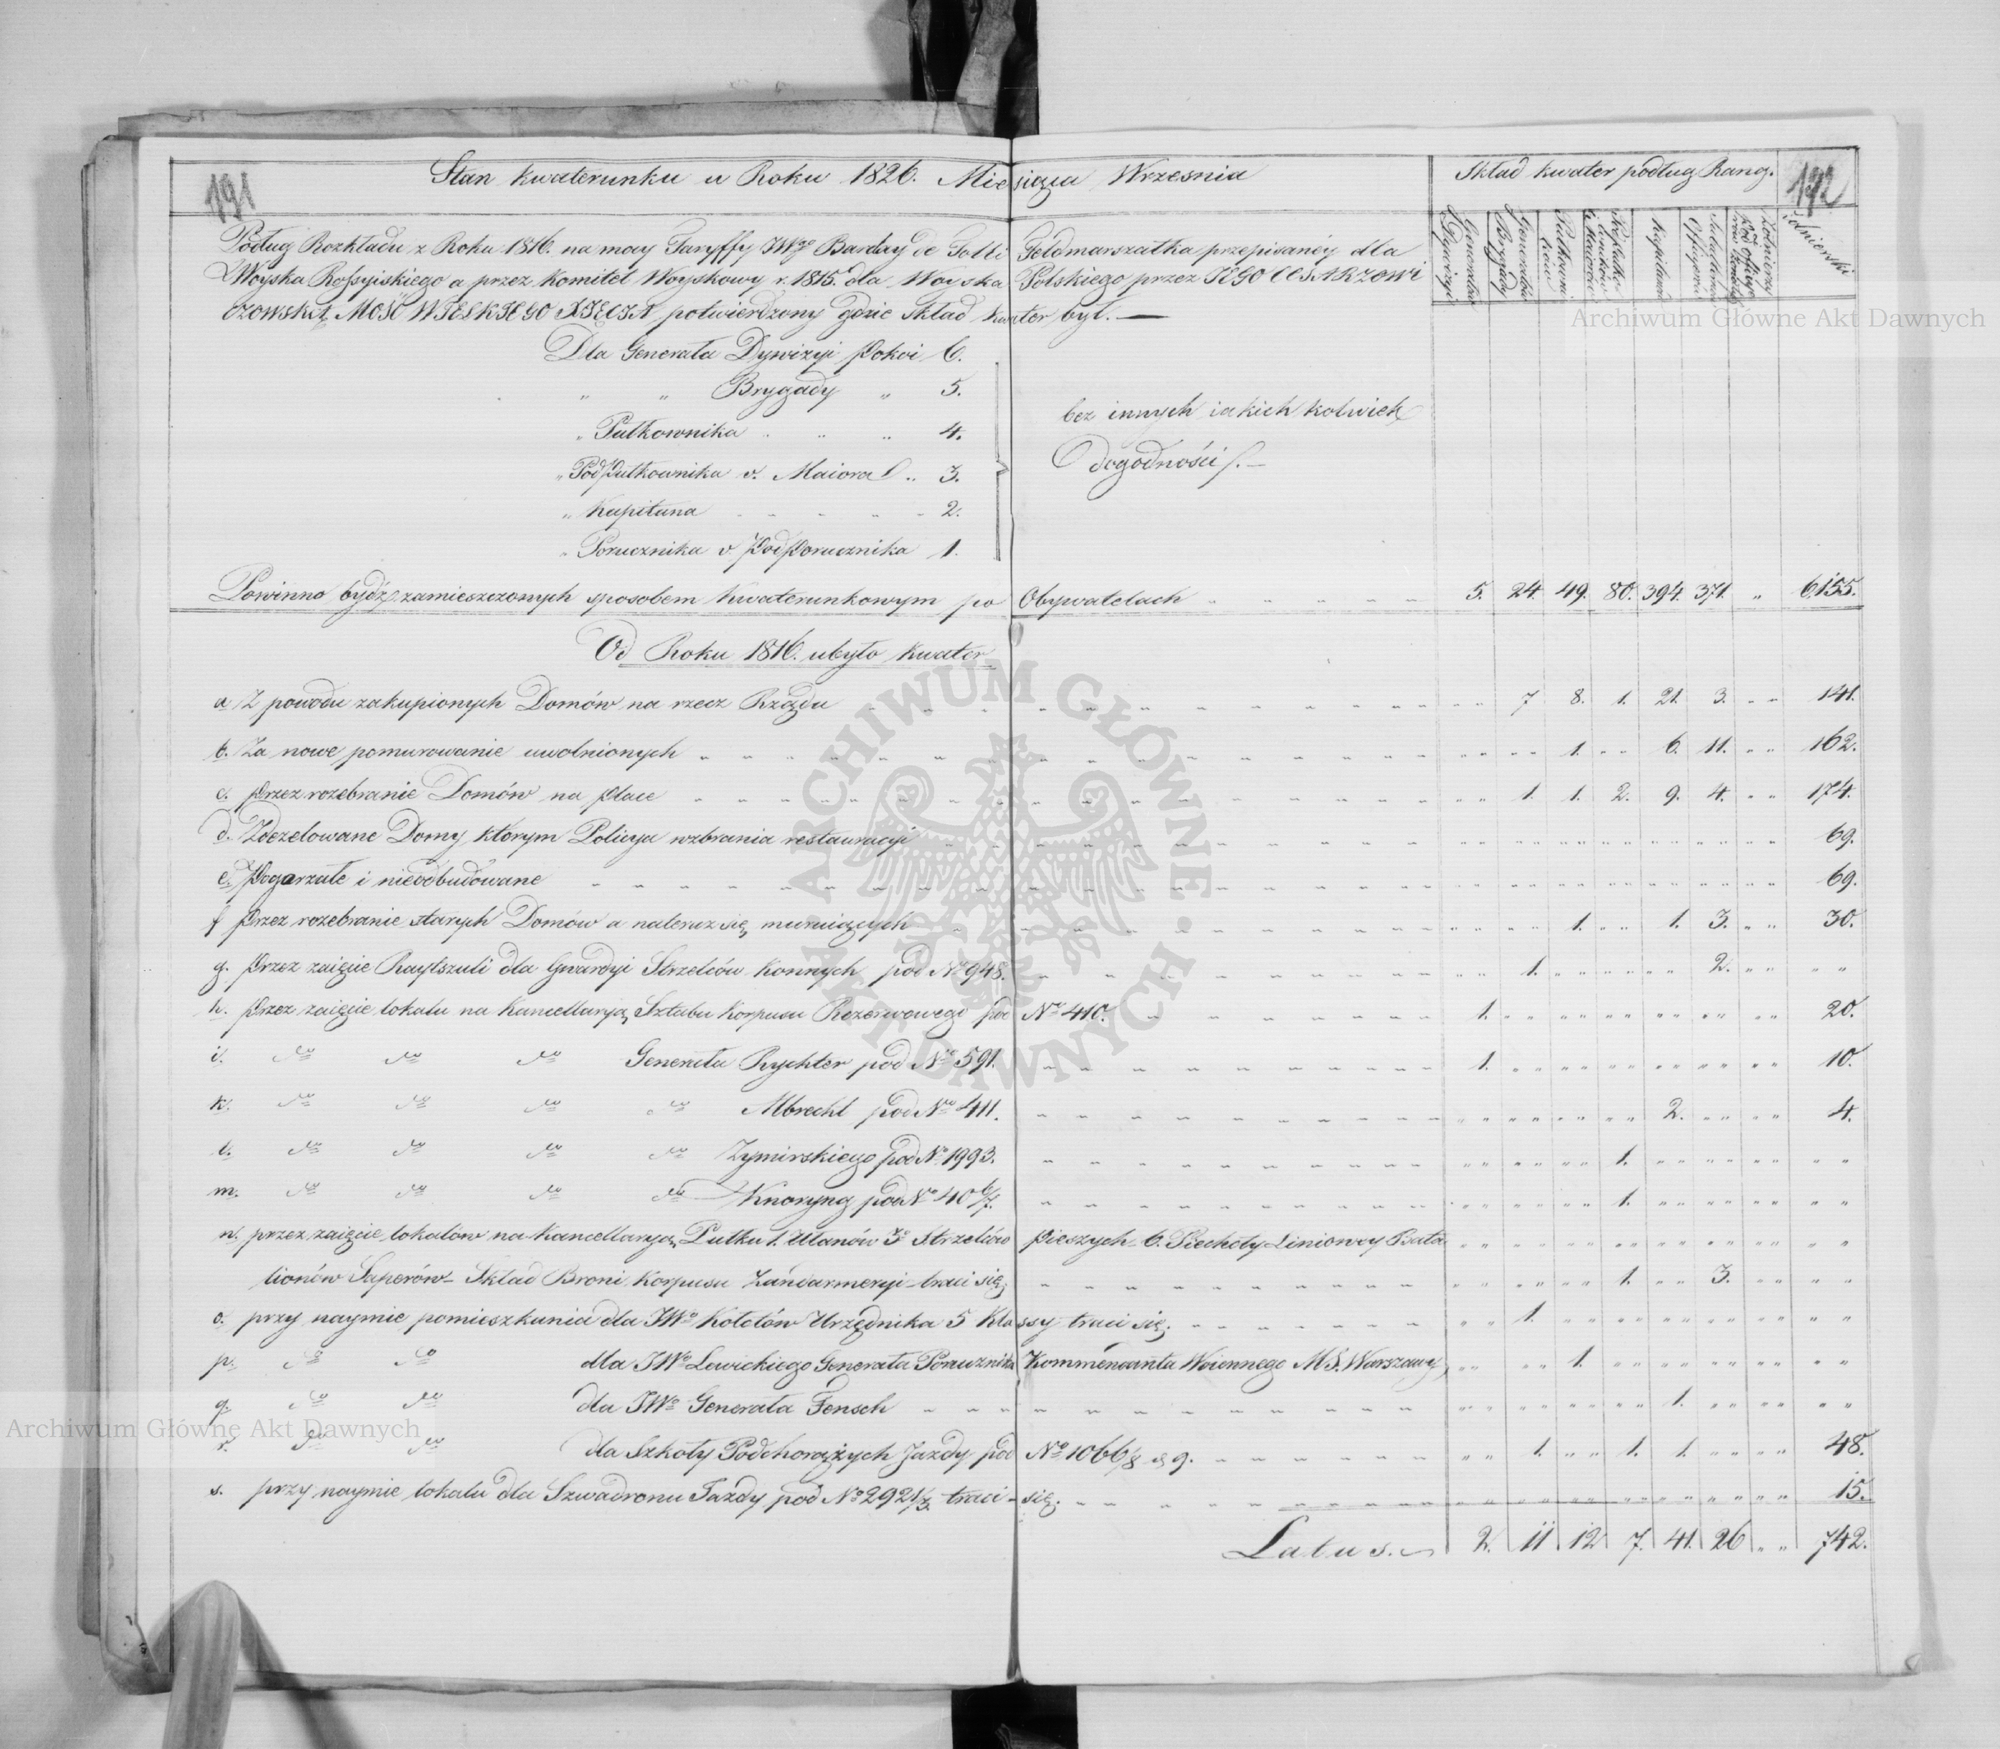 191
Stan kwaterunku w Roku 1826. Miesiąca Wrzesnia
Skład kwater podług Rang.
192
Generałów Dywizyi
Generałów Brygady
Pułkowników
Podpułkowników i Maiorów
Kapitanów
Subalternów Officerów
Żołnierzy
Podług Rozkładu z Roku 1816. na mocy Taryffy JWgo Barclay de Tolli Feldmarszałka przepisanéy dla
Woyska Rossyiskiego a przez Komitét Woyskowy r. 1815. dla Woyska Polskiego przez JEGO CESARZOWI
CZOWSKĄ MOŚĆ WIELKIEGO XIĘCIA potwierdzony gdzie Skład kwater był. —
Dla Generała Dywizyi Pokoi 6.
" " Brygady " 5.
" Pułkownika " 4.
" PodPułkownika v. Maiora " 3.
" Kapitana 2.
" Porucznika v. PodPorucznika 1.
bez innych iakich kolwiek
Dogodności.—
Powinno bydź zamieszczonych sposobem Kwaterunkowym po Obywatelach 5. 24. 49. 80. 394. 371. " 6,155.
Od Roku 1816. ubyło kwater
a Z powodu zakupionych Domów na rzecz Rządu " 7 8. 1. 21. 3. " " 141.
b. Za nowe pomurowanie uwolnionych " " 1. " 6. 11. " " 162.
c. Przez rozebranie Domów na place " 1. 1. 2. 9. 4. " " 174.
d. Zdezelowane Domy którym Policya wzbrania restauracyi 69.
e. Pogorzałe i nieodbudowane 69.
f Przez rozebranie starych Domów a nateraz się muruiących " " 1. " 1. 3. " " 30.
g. Przez zaięcie Raytszuli dla Gwardyi Strzelców Konnych pod No 948. " 1. " " " 2. " " "
h. Przez zaięcie lokalu na Kancellaryą Sztabu Korpusu Rezerwowego pod No 410. 1. " " " " " " " 20.
i. dto dto dto Generała Rychter pod No 591. 1. " " " " " " " 10.
k. dto dto dto dto Albrecht pod No 411. " " " " 2. " " " 4.
l. dto dto dto dto Zymirskiego pod No 1993. " " " 1. " " " " "
m. dto dto dto dto Knoryng pod No 40 6/7. " " " 1. " " " " "
n. przez zaięcie lokalów na Kancellaryą Pułku 1. Ułanów 3o Strzelców Pieszych 6. Piechoty Liniowey Bata
lionów Saperów Skład Broni Korpusu Żandarmeryi traci się " " " 1. " 3. " " "
o. przy naymie pomieszkania dla JWo Kołotów Urzędnika 5 Klassy traci się. " 1. " " " " " " "
p. dto dto dla JWo Lewickiego Generała Porucznika Kommendanta Woiennego M.S. Warszawy " " 1. " " " " " "
q. dto dto dla JWo Generała Fensch " " " " 1. " " " "
r. dto dto dla Szkoły Podchorążych Jazdy pod No 1066/8 & 9. " 1. " 1. 1. " " " 48.
s. przy naymie lokalu dla Szwadronu Jazdy pod No 2921/2 traci się. 15.
Latus. 2. 11 12 7. 41. 26 " " 742.
Archiwum Główne Akt Dawnych
ARCHIWUM GŁÓWNE AKT DAWNYCH
Archiwum Główne Akt Dawnych